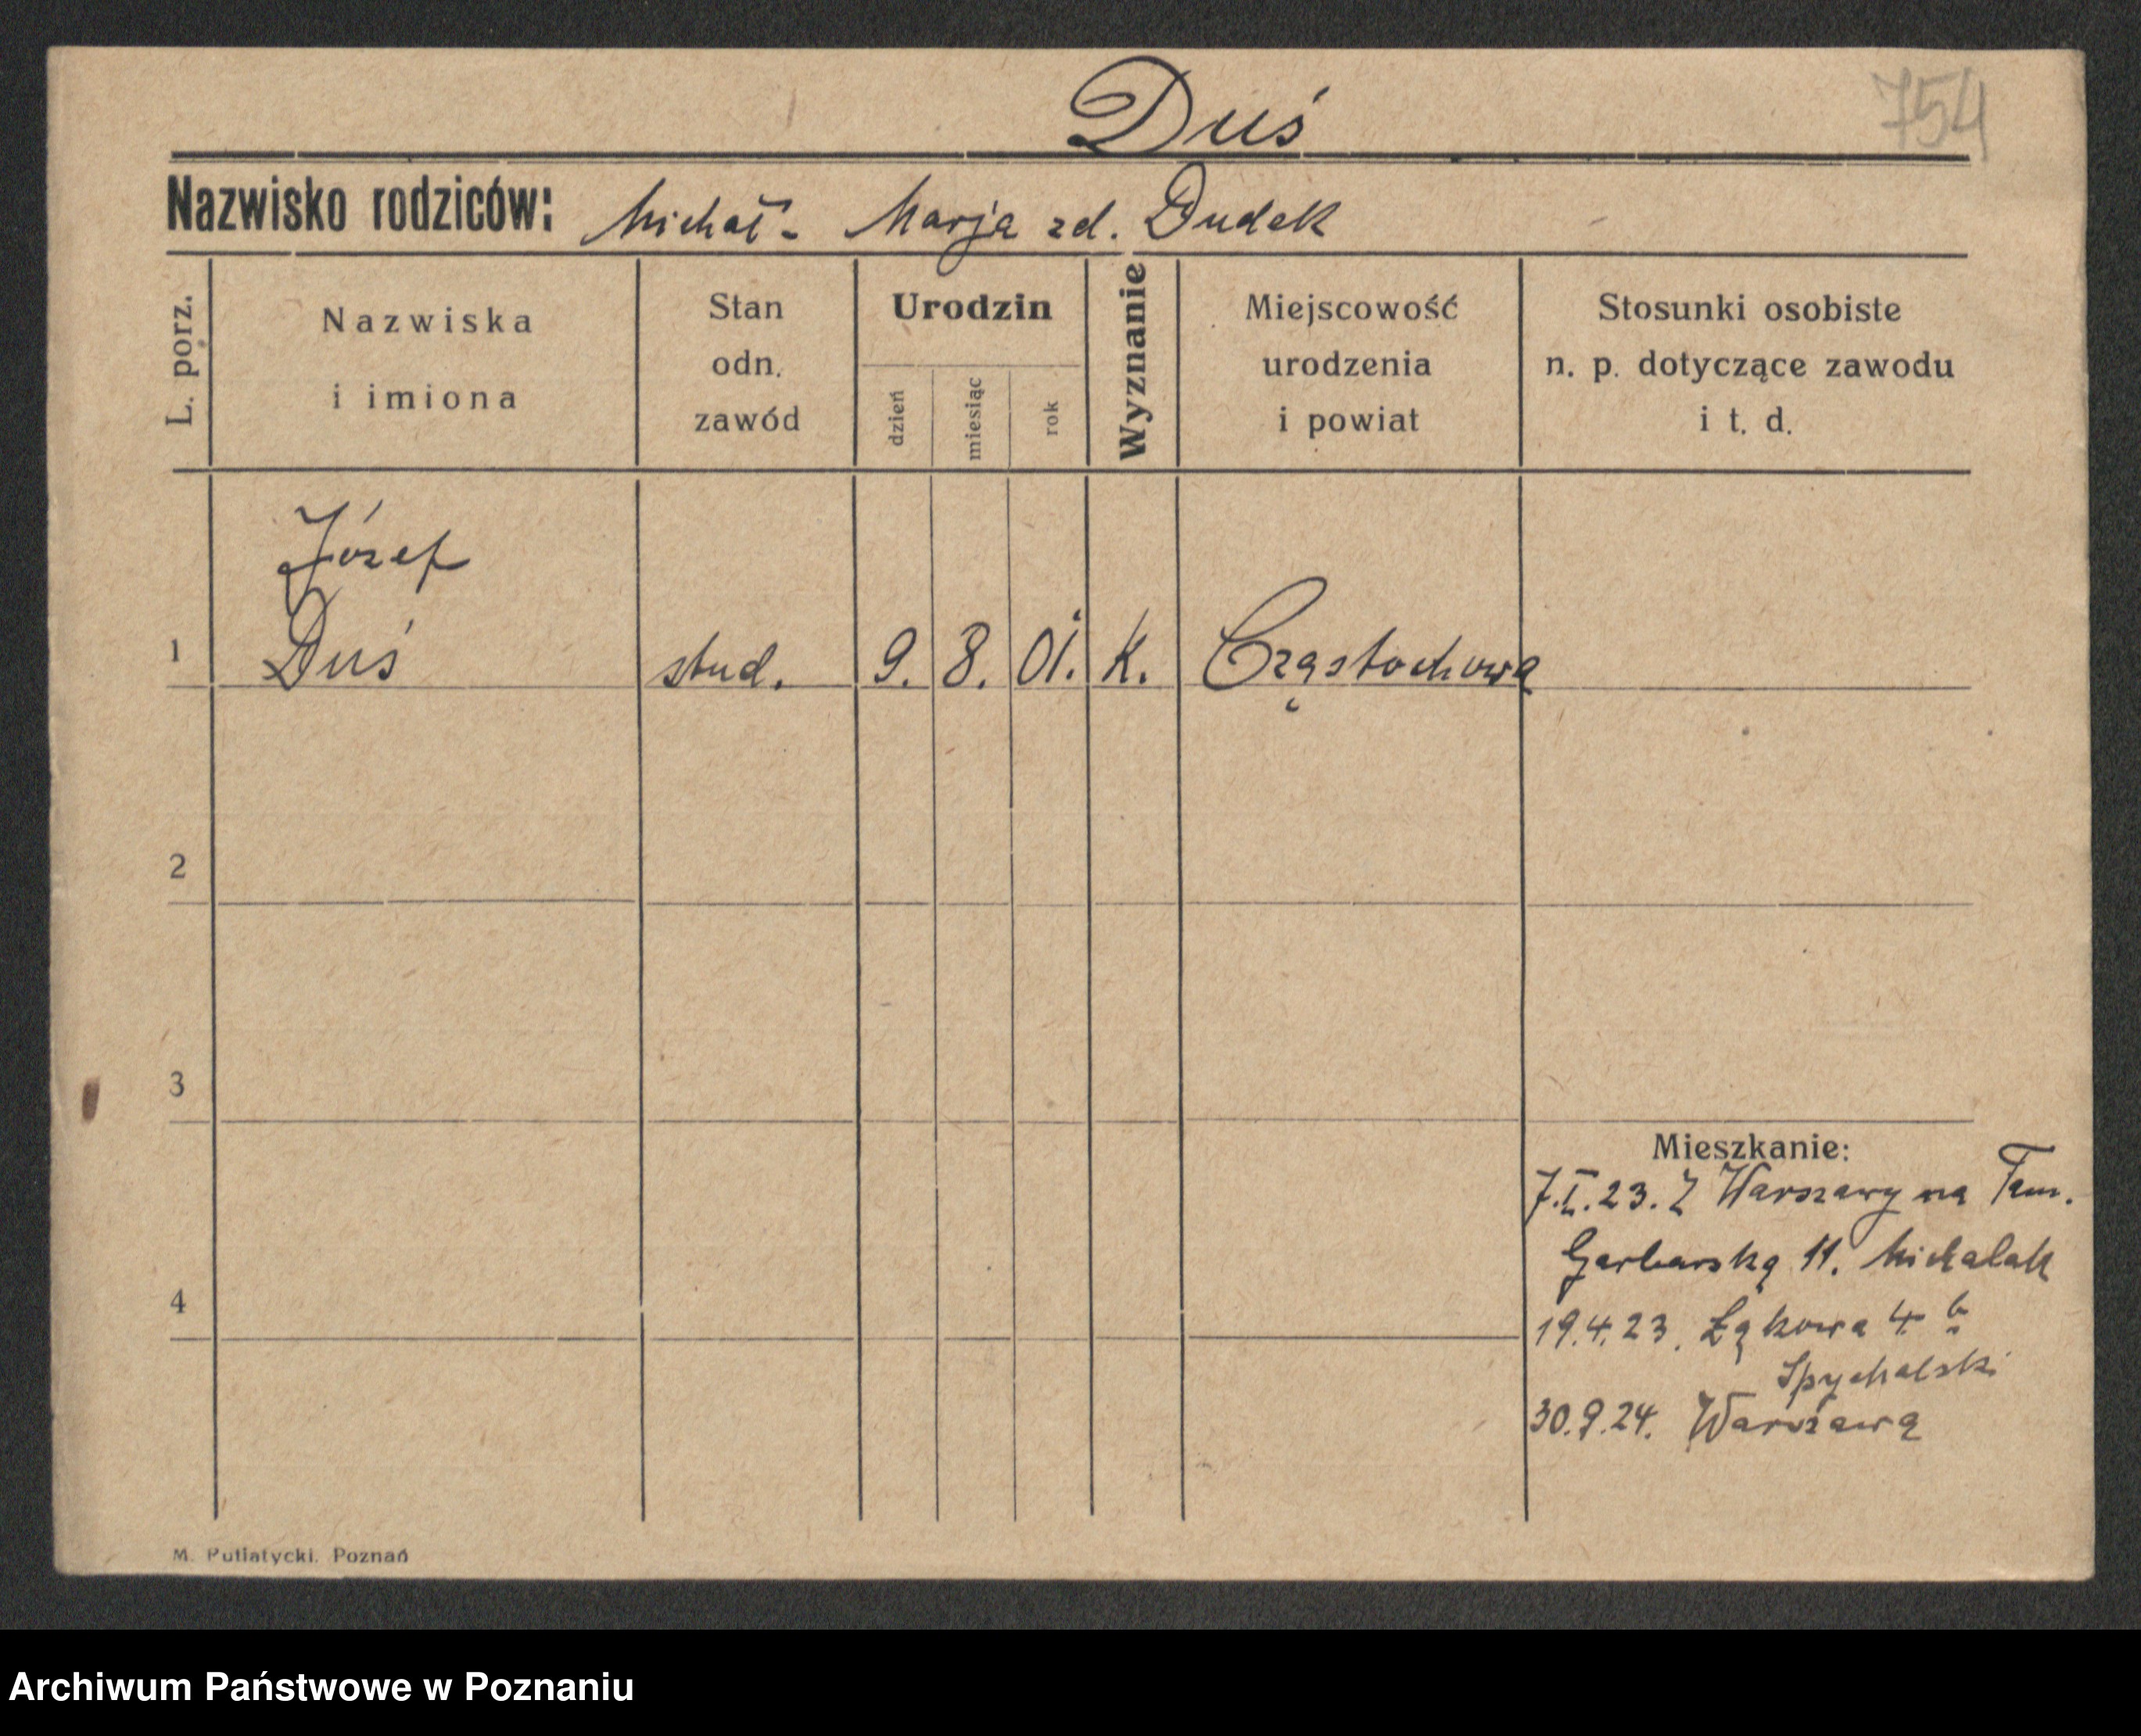 Duś
754
Nazwisko rodziców: Michał - Marja zd. Dudek
L. porz.
Nazwiska
i imiona
Stan
odn.
zawód
Urodzin
dzień
miesiąc
rok
Wyznanie
Miejscowość
urodzenia
i powiat
Stosunki osobiste
n. p. dotyczące zawodu
i t. d.
Józef
1 Duś stud. 9. 8. 01. K. Częstochowa
2
3
Mieszkanie:
7.I.23. Z Warszawy na
Garbarską 11. Michalak
4
19.4.23. Łąkowa 4 b
Spychalski
30.9.24. Warszawa
M. Putiatycki. Poznań
Archiwum Państwowe w Poznaniu